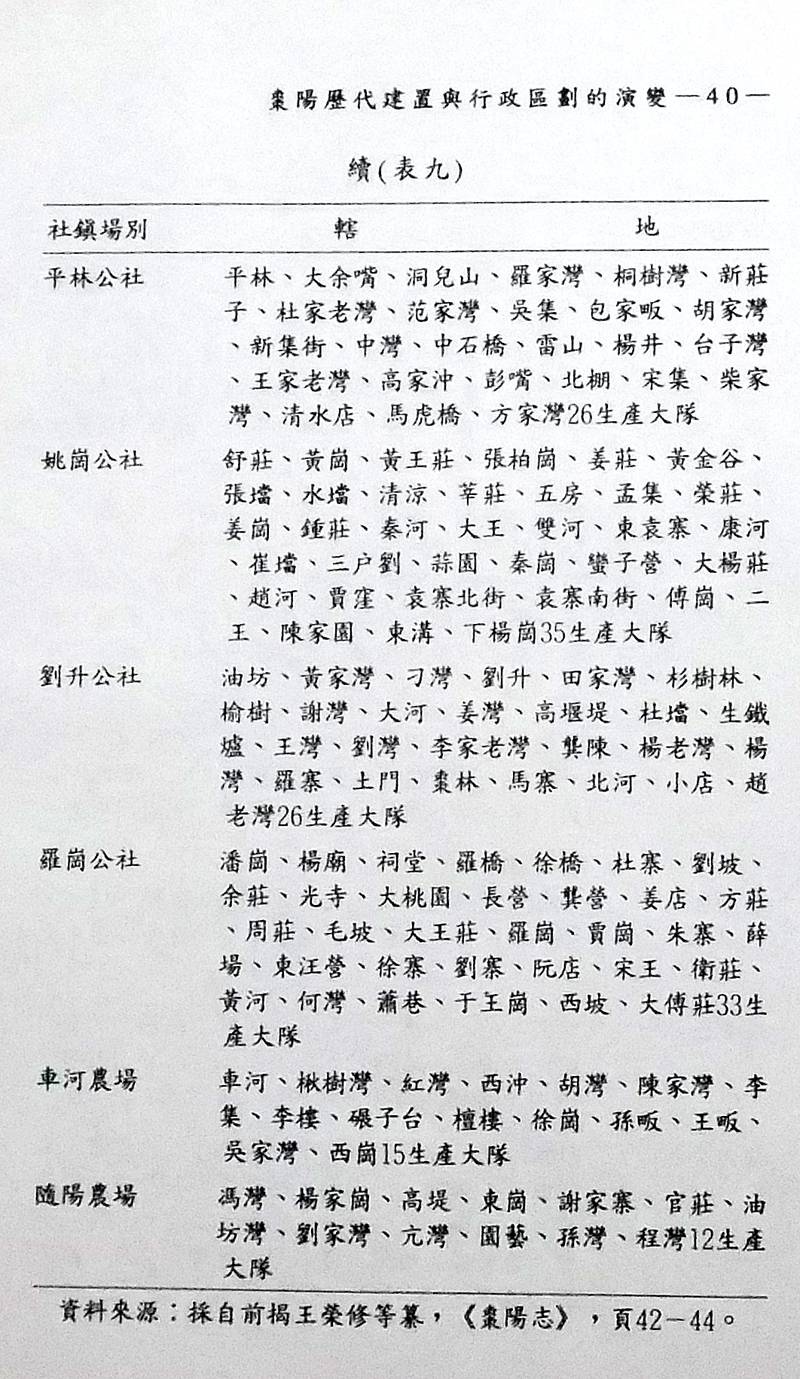 棗陽歷代建置與行政區劃的演變—40—
續(表九)
社鎮場別 轄 地
平林公社 平林、大余嘴、洞兒山、羅家灣、桐樹灣、新莊
子、杜家老灣、范家灣、吳集、包家畈、胡家灣
、新集街、中灣、中石橋、雷山、楊井、台子灣
、王家老灣、高家沖、彭嘴、北棚、宋集、柴家
灣、清水店、馬虎橋、方家灣26生產大隊
姚崗公社 舒莊、黃崗、黃王莊、張柏崗、姜莊、黃金谷、
張壋、水壋、清涼、莘莊、五房、孟集、榮莊、
姜崗、鍾莊、秦河、大王、雙河、東袁寨、康河
、崔壋、三户劉、蒜園、秦崗、蠻子營、大楊莊
、趙河、賈窪、袁寨北街、袁寨南街、傅崗、二
王、陳家園、東溝、下楊崗35生產大隊
劉升公社 油坊、黃家灣、刁灣、劉升、田家灣、杉樹林、
榆樹、謝灣、大河、姜灣、高堰堤、杜壋、生鐵
爐、王灣、劉灣、李家老灣、龔陳、楊老灣、楊
灣、羅寨、土門、棗林、馬寨、北河、小店、趙
老灣26生產大隊
羅崗公社 潘崗、楊廟、祠堂、羅橋、徐橋、杜寨、劉坡、
余莊、光寺、大桃園、長營、龔營、姜店、方莊
、周莊、毛坡、大王莊、羅崗、賈崗、朱寨、薛
場、東汪營、徐寨、劉寨、阮店、宋王、衛莊、
黃河、何灣、蕭巷、于王崗、西坡、大傅莊33生
產大隊
車河農場 車河、楸樹灣、紅灣、西沖、胡灣、陳家灣、李
集、李樓、碾子台、檀樓、徐崗、孫畈、王畈、
吳家灣、西崗15生產大隊
隨陽農場 馮灣、楊家崗、高堤、東崗、謝家寨、官莊、油
坊灣、劉家灣、亢灣、園藝、孫灣、程灣12生產
大隊
資料來源：採自前揭王榮修等纂，《棗陽志》，頁42－44。